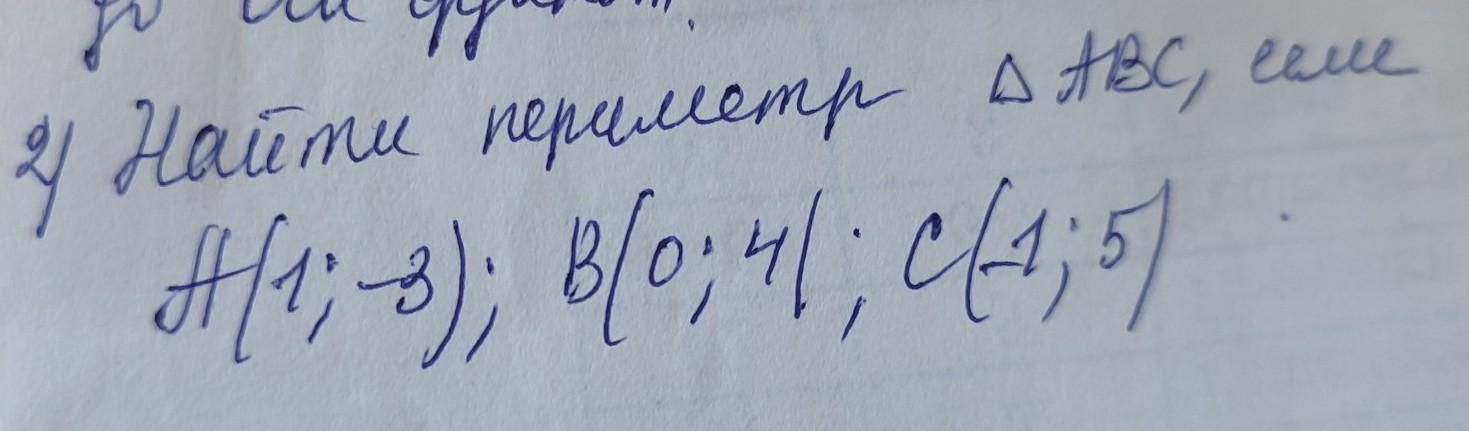 2) Найти периметр △ ABC, если
A(1; -3); B(0; 4); C(-1; 5)